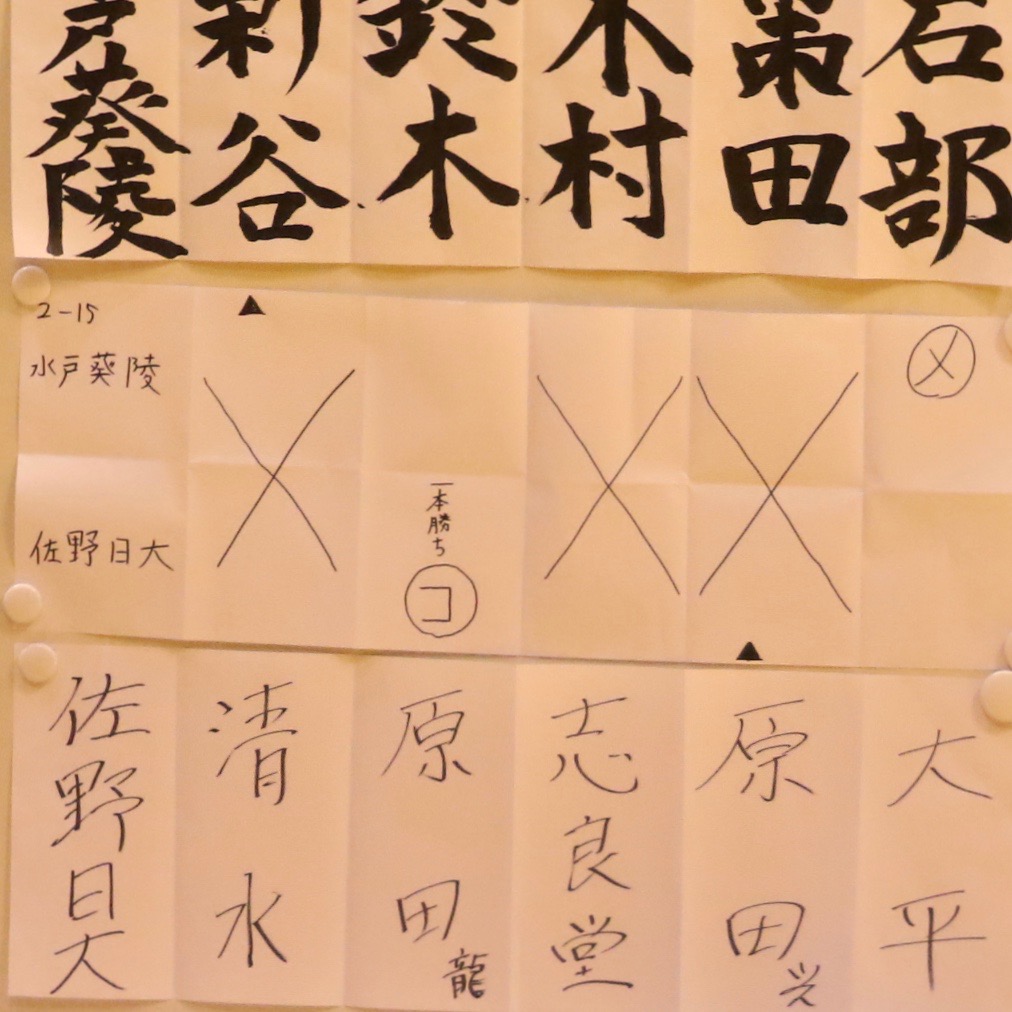 戸葵陵
新谷
鈴木
木村
田
部
2-15
水戸葵陵
佐野日大
▲
一本勝ち
コ
▲
メ
佐野日大
清水
原田龍
志良堂
原田
大平